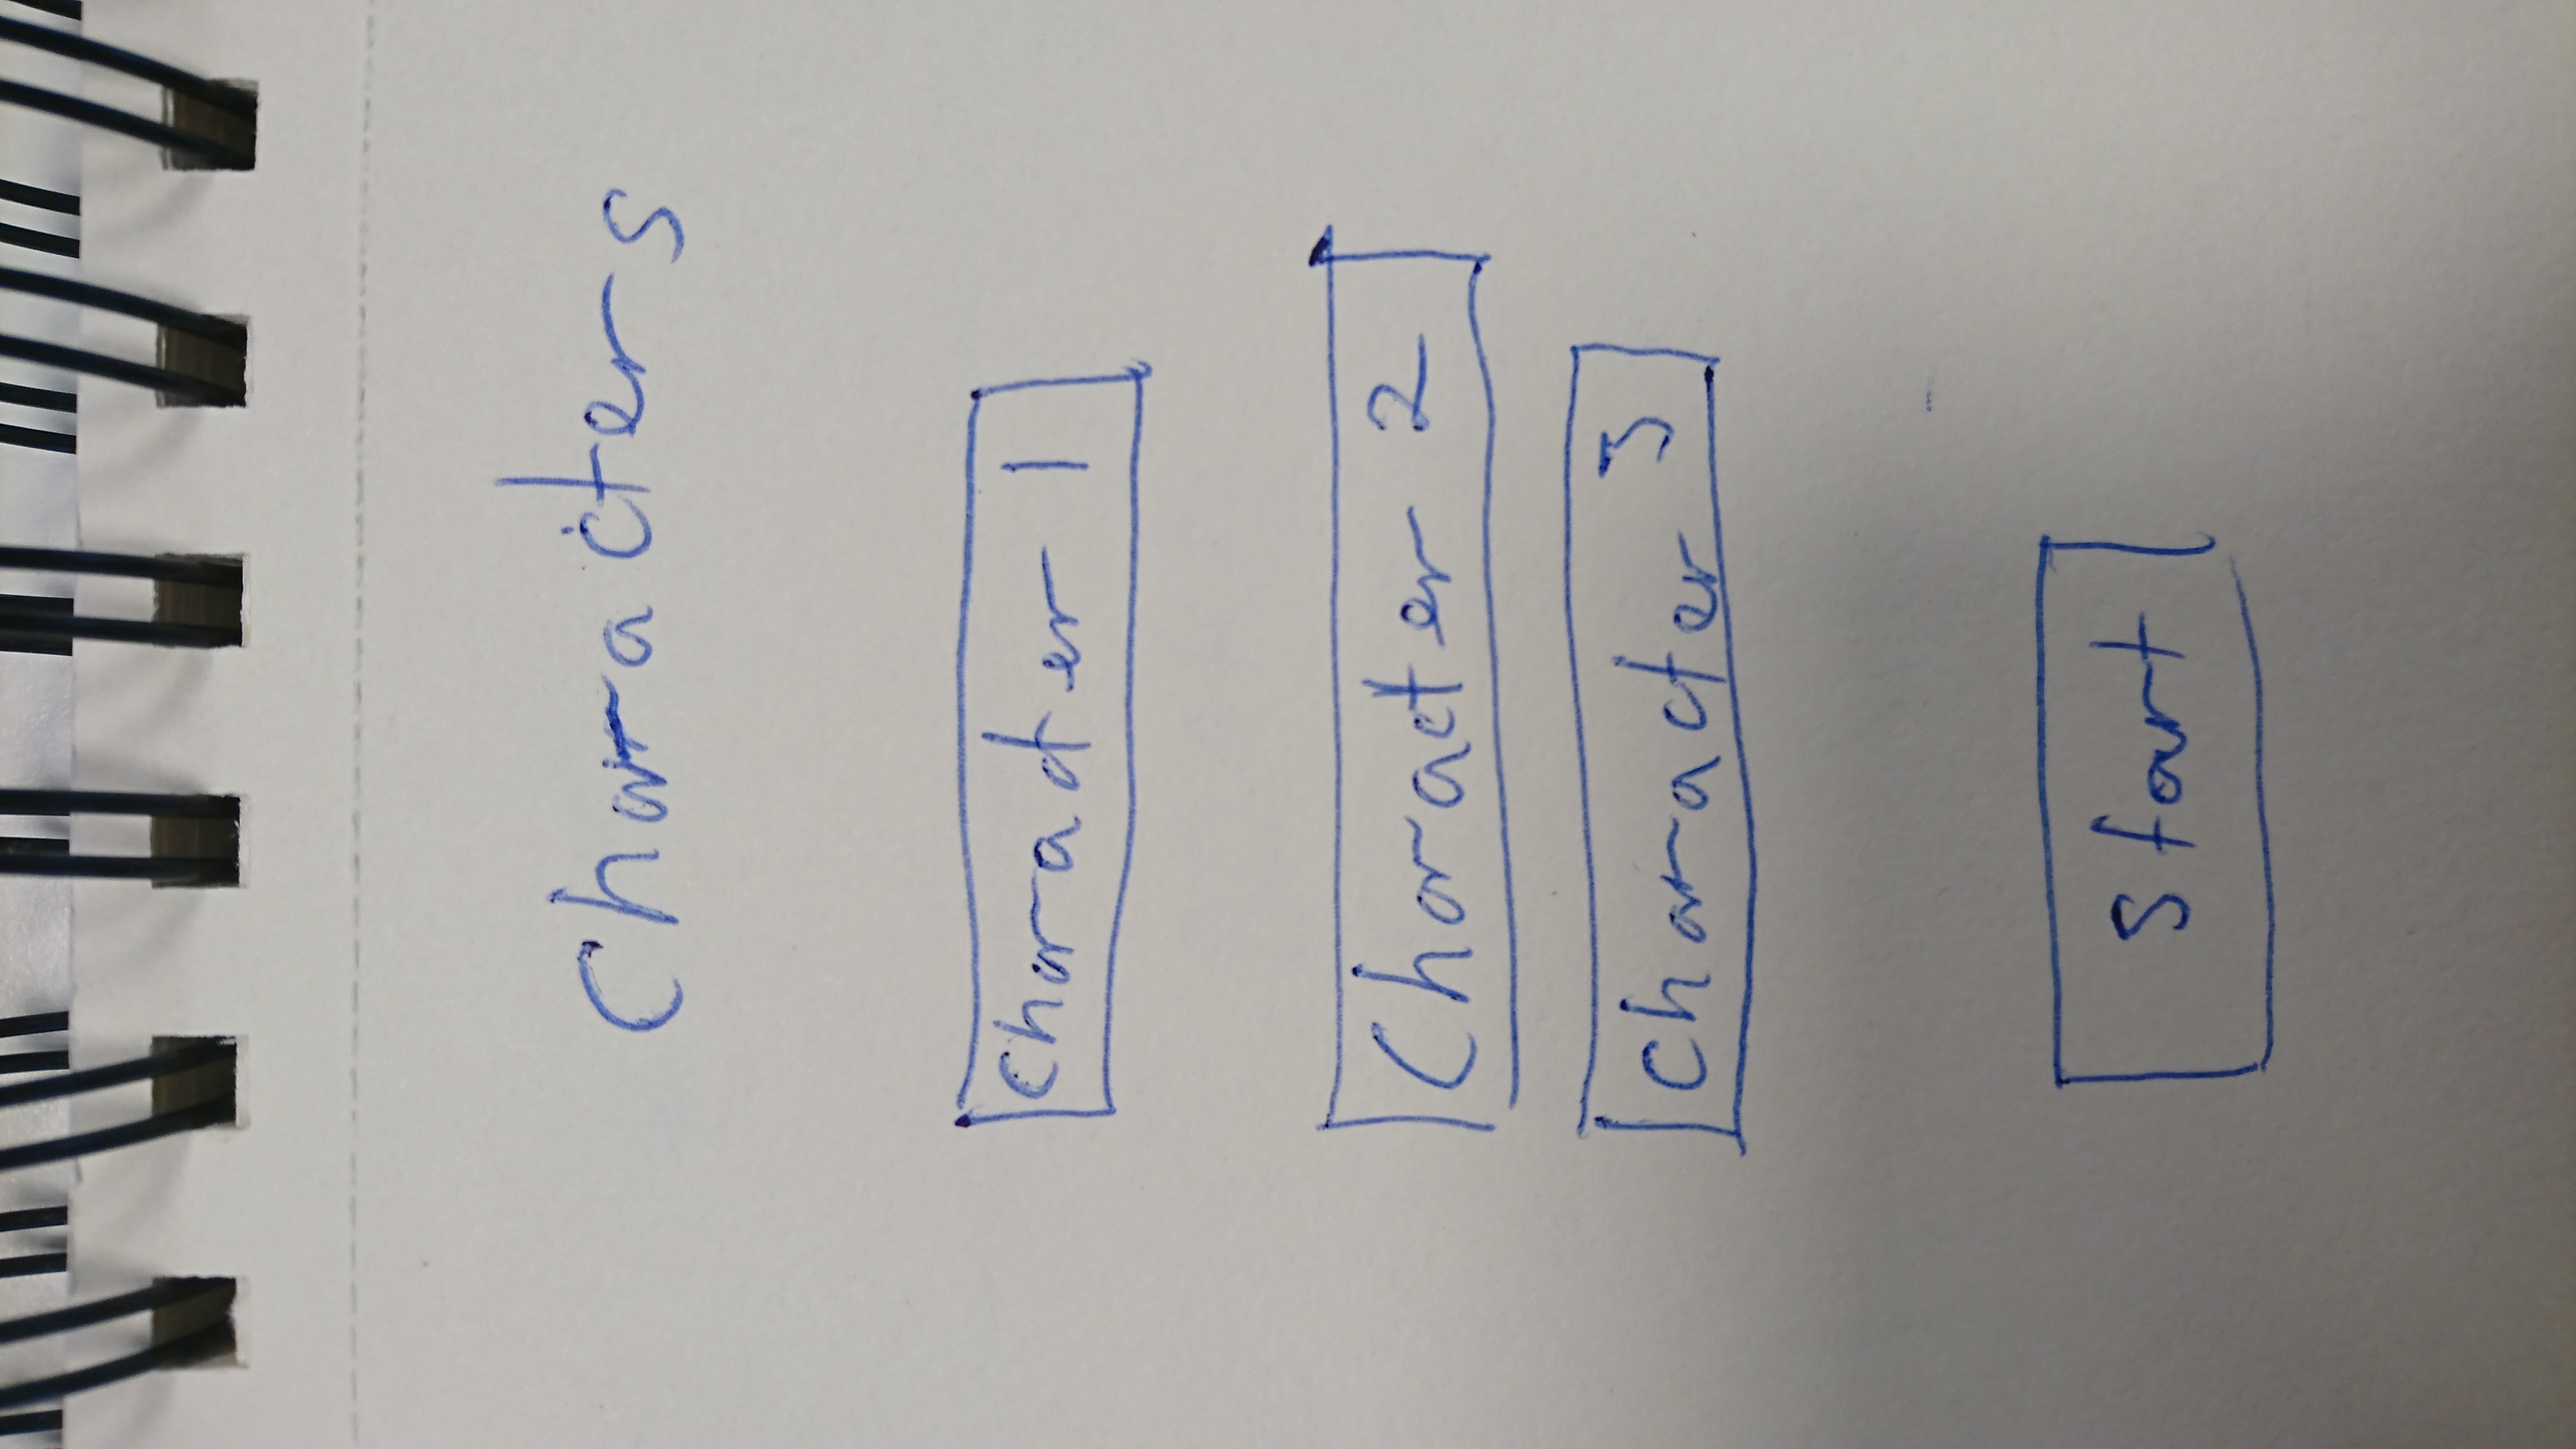 Characters
Character 1
Character 2
Character 3
Start